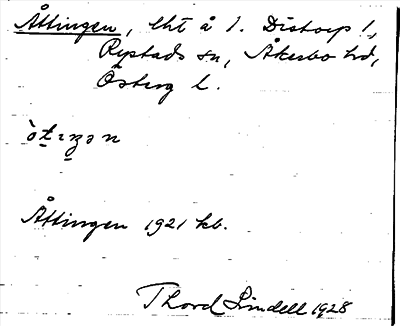 Åttingen, lht å l. Distorp l.,
Rystads sn, Åkerbo hd,
Österg l.
Åttingen 1921 kb.
Thord Lindell 1928